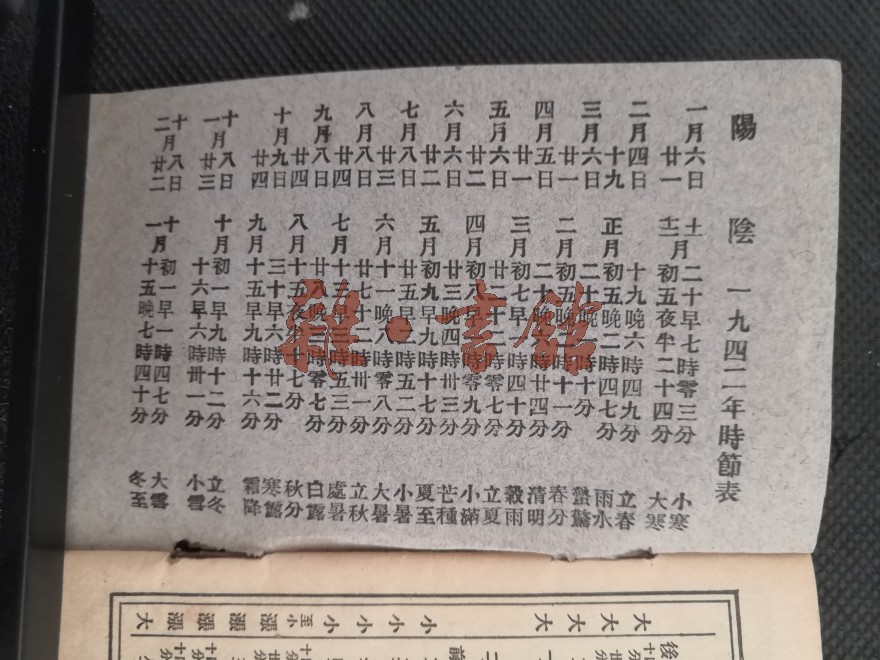 陽 陰 一九四二年時節表
一月六日 十一月二十早七時零三分 小寒
廿一 十二初五夜半二十四分 大寒
二月四日 十九晚六時四九分 立春
十九 正月初五晚二時四七分 雨水
三月六日 二十晚十分 蟄驚
廿一 二月初五晚二時十一分 春分
四月五日 二十晚六時廿四分 清明
廿一 三月初七早一時四十分 穀雨
五月六日 廿二十二時零七分 立夏
廿二 四月初八早時零九分 小滿
六月六日 廿三晚四時卅三分 芒種
廿二 五月初九早九時十七分 夏至
七月八日 廿五早二時五二分 小暑
廿三 六月十一晚八時零八分 大暑
八月八日 廿七十二時卅一分 立秋
廿四 七月十三早三時五三分 處暑
九月八日 廿八晚三時零七分 白露
廿四 八月十五夜半十七分 秋分
十月九日 三十早六時廿二分 寒露
廿四 九月十五早九時十六分 霜降
十一月八日 十月初一早九時十二分 立冬
廿三 十六早六時卅一分 小雪
十二月八日 十一月初一早一時四七分 大雪
廿二 十五晚七時四十分 冬至
雜·書館
後 大 大 大 大 小 小 小 小 至小 漲 漲 漲 漲 大
前